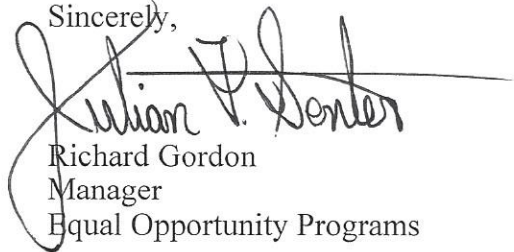 Sincerely,
Julian P. Senter
Richard Gordon
Manager
Equal Opportunity Programs